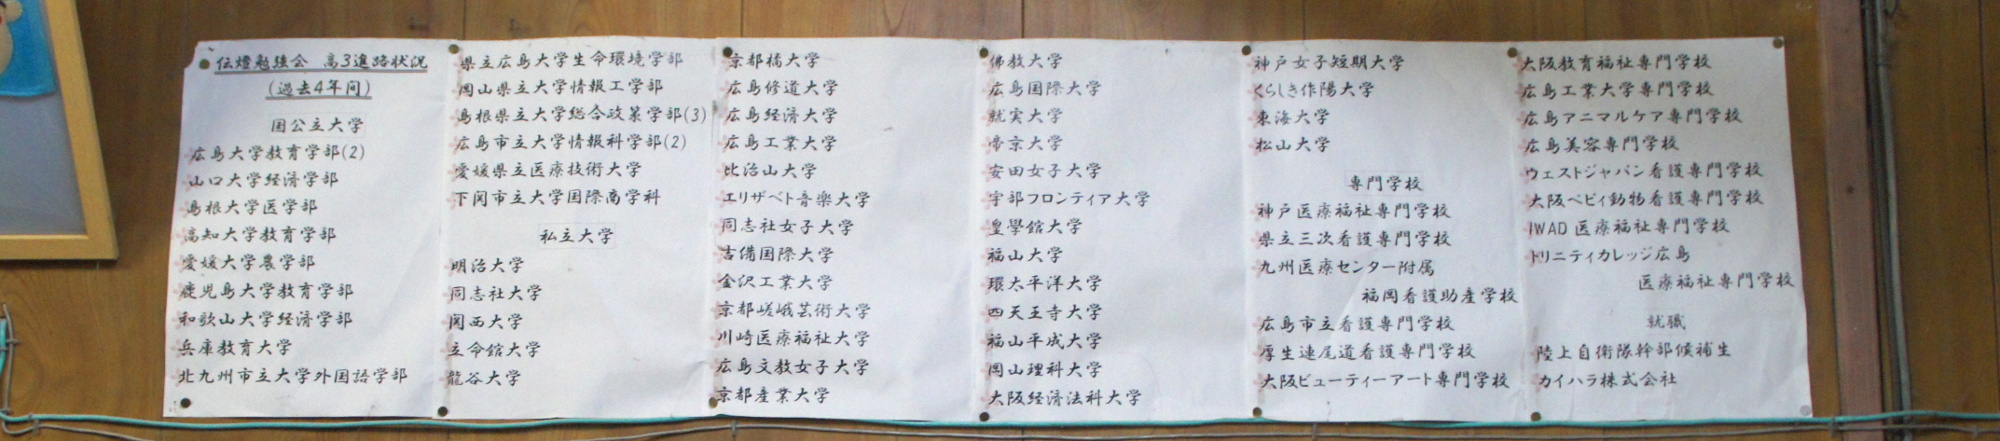 伝燈勉強会 高3進路状況
(過去4年間)
国公立大学
広島大学教育学部(2)
山口大学経済学部
島根大学医学部
高知大学教育学部
愛媛大学農学部
鹿児島大学教育学部
和歌山大学経済学部
兵庫教育大学
北九州市立大学外国語学部
県立広島大学生命環境学部
岡山県立大学情報工学部
島根県立大学総合政策学部(3)
広島市立大学情報科学部(2)
愛媛県立医療技術大学
下関市立大学国際商学科
私立大学
明治大学
同志社大学
関西大学
立命館大学
龍谷大学
京都橘大学
広島修道大学
広島経済大学
広島工業大学
比治山大学
エリザベト音楽大学
同志社女子大学
吉備国際大学
金沢工業大学
京都嵯峨芸術大学
川崎医療福祉大学
広島文教女子大学
京都産業大学
佛教大学
広島国際大学
就実大学
帝京大学
安田女子大学
宇部フロンティア大学
皇學館大学
福山大学
環太平洋大学
四天王寺大学
福山平成大学
岡山理科大学
大阪経済法科大学
神戸女子短期大学
くらしき作陽大学
東海大学
松山大学
専門学校
神戸医療福祉専門学校
県立三次看護専門学校
九州医療センター附属
福岡看護助産学校
広島市立看護専門学校
厚生連尾道看護専門学校
大阪ビューティーアート専門学校
大阪教育福祉専門学校
広島工業大学専門学校
広島アニマルケア専門学校
広島美容専門学校
ウェストジャパン看護専門学校
大阪ペピィ動物看護専門学校
IWAD 医療福祉専門学校
トリニティカレッジ広島
医療福祉専門学校
就職
陸上自衛隊幹部候補生
カイハラ株式会社